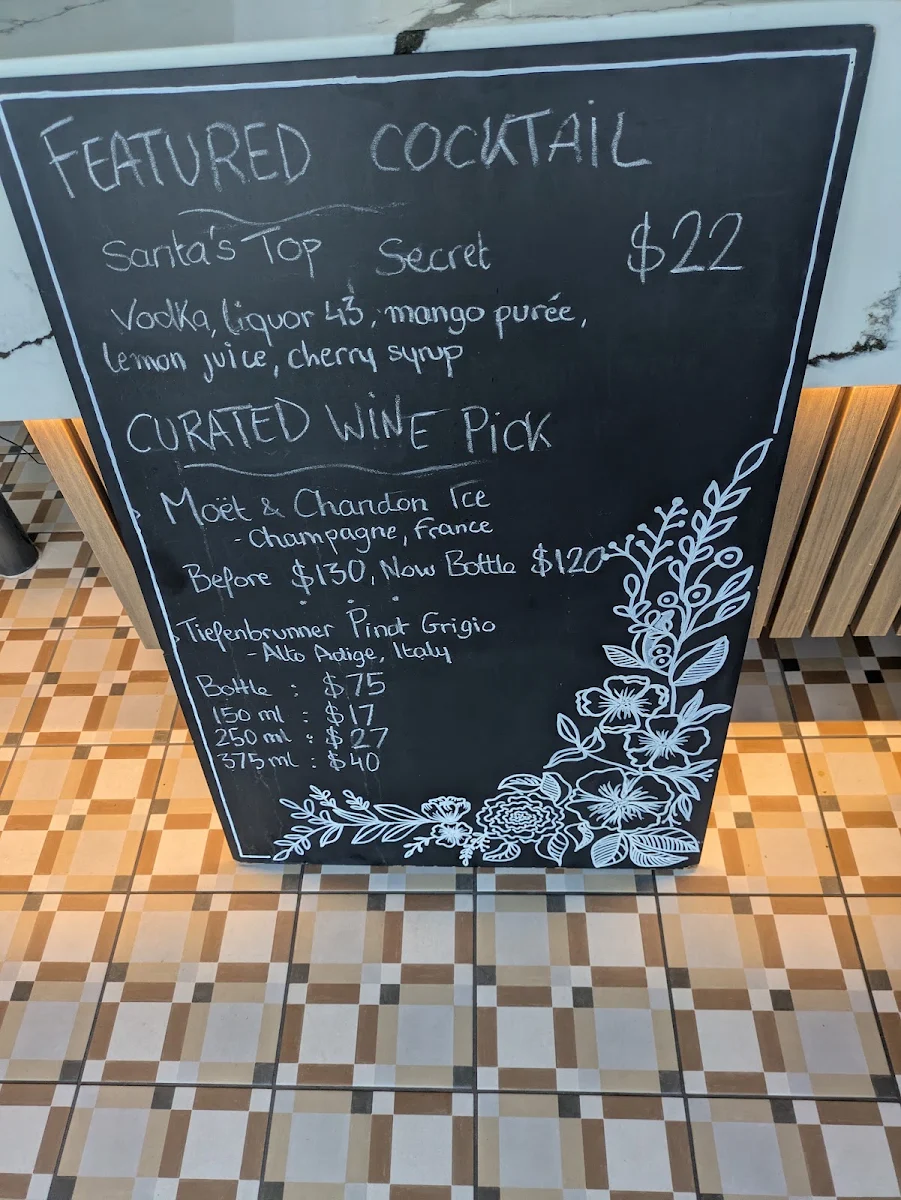 FEATURED COCKTAIL
Santa's Top Secret $22
Vodka, liquor 43, mango purée,
lemon juice, cherry syrup
CURATED WINE PicK
Moët & Chandon Ice
- Champagne, France
Before $130, Now Bottle $120
Tiefenbrunner Pinot Grigio
- Alto Adige, Italy
Bottle : $75
150 ml : $17
250 ml : $27
375 ml : $40